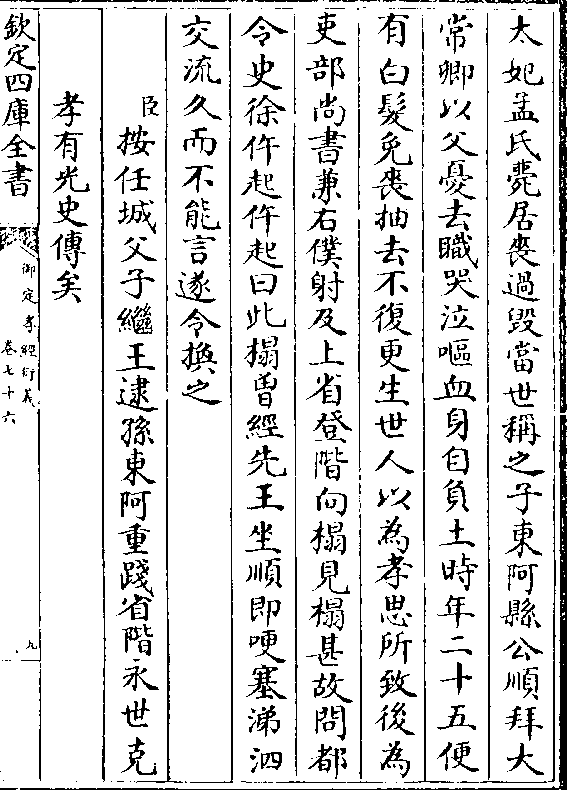 太妃孟氏薨居喪過毀當世稱之子東阿縣公順拜太
常卿以父憂去職哭泣嘔血身自負土時年二十五便
有白髮免喪抽去不復更生世人以為孝思所致後為
吏部尚書兼右僕射及上省登階向榻見榻甚故問都
令史徐仵起仵起曰此榻曾經先王坐順即哽塞涕泗
交流久而不能言遂令換之
臣按任城父子繼王逮孫東阿重踐省階永世克
孝有光史傳矣
欽定四庫全書
御定孝經衍義
卷七十六
九